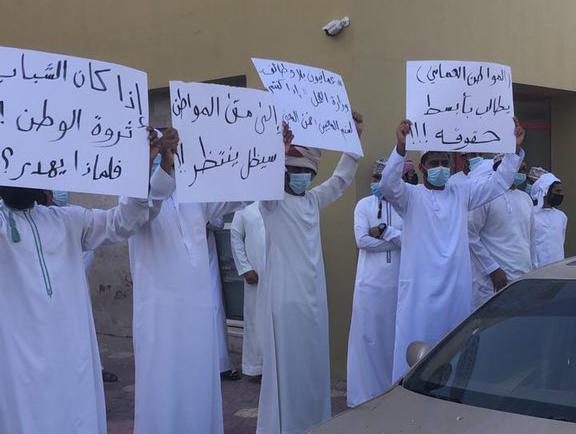 إذا كان الشباب
ثروة الوطن !!
فلماذا يهدر؟؟
إلى متى المواطن
سيظل ينتظر !!
عمانيون بلا وظائف
وزارة العمل
(المواطن العماني)
يطالب بأبسط
حقوقه !!!